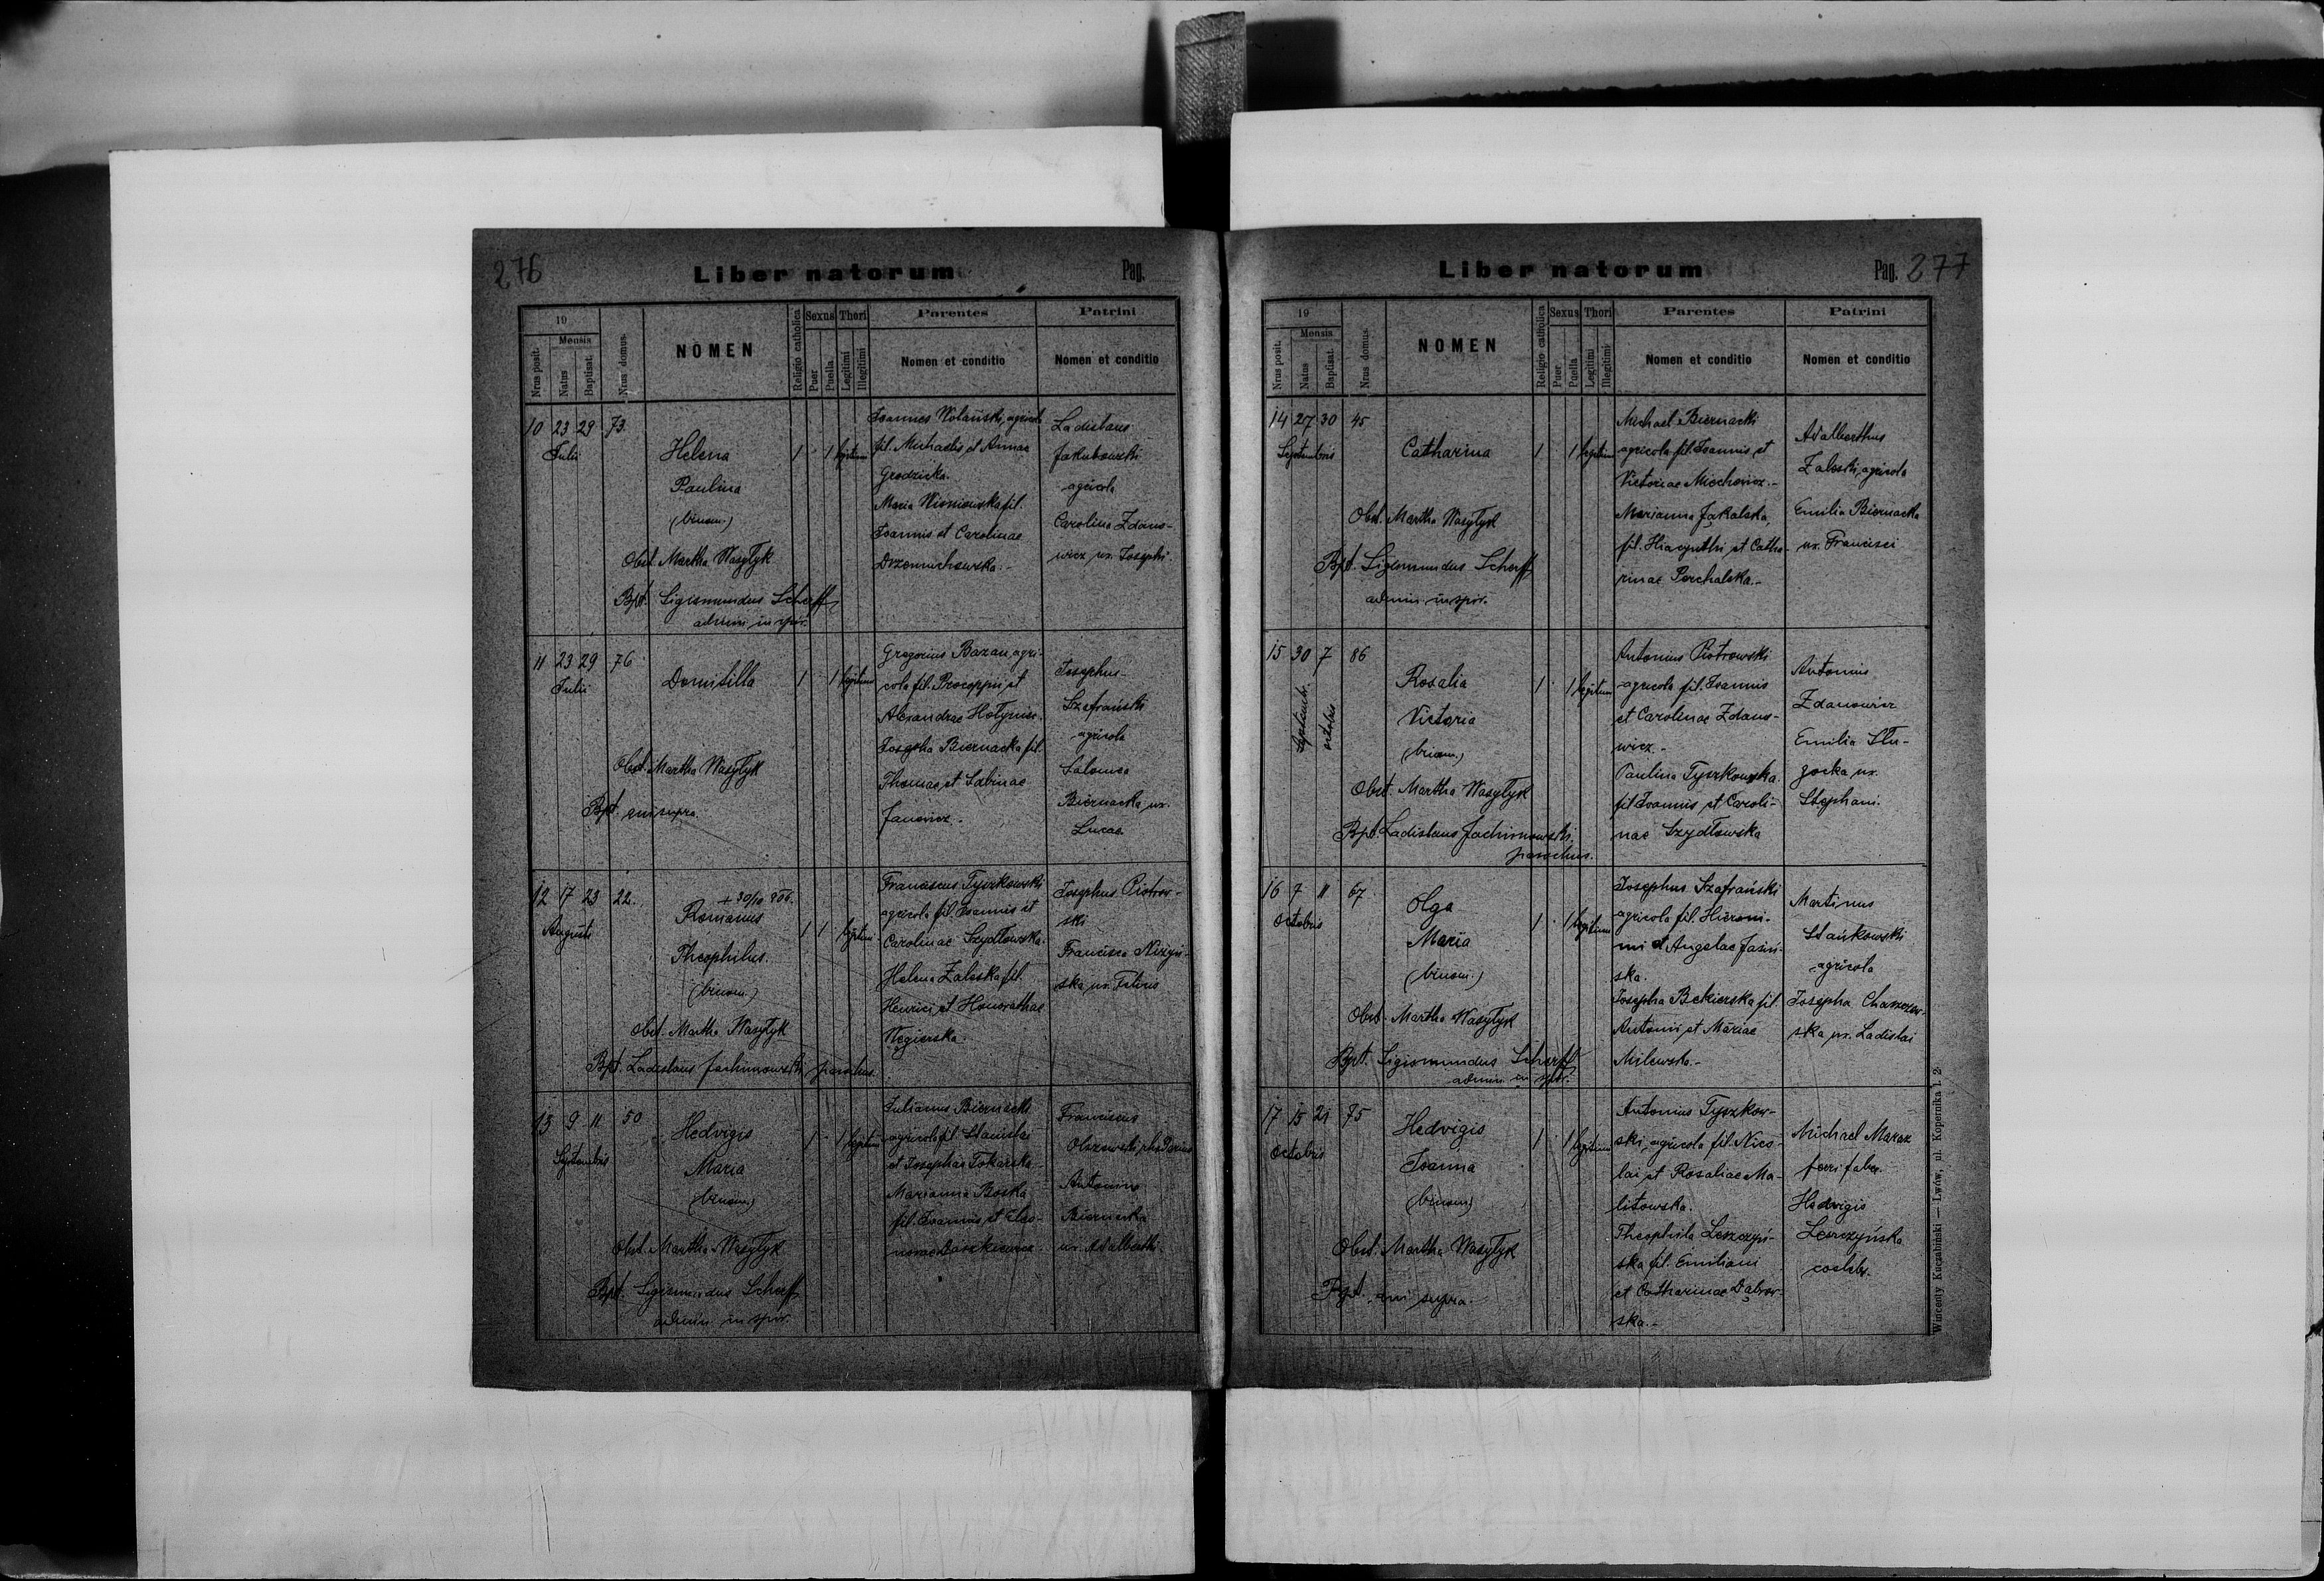 276
Liber natorum
Pag.
19
Mensis
Nrus posit.
Natus
Baptisat.
Nrus domus.
NOMEN
Religio catholica
Sexus
Puer
Puella
Thori
Legitimi
Illegitimi
Parentes
Nomen et conditio
Patrini
Nomen et conditio
10 23 29 73.
Julii
Helena
Paulina
(binom.)
Obst. Martha Wasylyk
Bpt. Sigismundus Scherff
admin in spir.
1 1 legitim
Joannes Wolański, agricola
fil. Michaelis et Annae
Grodzicka.
Maria Wisniowska fil.
Joannis et Carolinae
Drzemichowska.-
Ladislaus
Jakubowski
agricola
Carolina Zdano-
wicz ux. Josephi.
11 23 29 76
Julii
Domitilla
Obst. Martha Wasylyk
Bpt. qui supra.
1 1 legitim
Gregorius Bazan, agri-
cola fil. Procopii et
Alexandrae
Josepha Biernacka fil.
Thomae et Sabinae
Janowicz.
Josephus
Szafrański
agricola
Salomea
Biernacka ux.
Lucae
12 17 23 22.
Augusti
+ 30/10 906.
Romanus
Theophilus.
(binom.)
Obst. Martha Wasylyk
Bpt. Ladislaus Jachimowski, parochus.
1 1 legitimi
Franciscus Tyszkowski
agricola fil. Joannis et
Carolinae Szydłowska.
Helena Zaleska fil.
Henrici et Honorathae
Węgierska.
Josephus Piotrow-
ski
Francisca Niżyń-
ska ux. Felicis
13 9 11 50
Septembris
Hedvigis
Maria
(binom.)
Obst. Martha Wasylyk
Bpt. Sigismundus Scherff
admin in spir.
1 1 legitim
Julianus Biernacki
agricola fil. Stanislai
et Josephae Tokarska
Marianna Boska
fil. Joannis et Eleo-
norae
Franciscus
Olszewski
Antonina
Biernacka
ux. Adalberthi.
Liber natorum
Pag. 277
19
Mensis
Nrus posit.
Natus
Baptisat.
Nrus domus.
NOMEN
Religio catholica
Sexus
Puer
Puella
Thori
Legitimi
Illegitimi
Parentes
Nomen et conditio
Patrini
Nomen et conditio
14 27 30 45
Septembris
Catharina
Obst. Martha Wasylyk
Bpt. Sigismundus Scherff
admin in spir.
1 1 legitim
Michael Biernacki
agricola fil. Joannis et
Victoriae Miechowicz.-
Marianna Jakalska,
fil. Hiacynthi et Catha-
rinae Perchalska.-
Adalberthus
Zaleski, agricola
Emilia Biernacka
ux. Francisci
15 30 7 86
Septembr.
octobris
Rosalia
Victoria
(binom.)
Obst. Martha Wasylyk
Bpt. Ladislaus Jachimowski,
parochus.
1 1 legitim
Antonius Piotrowski
agricola fil. Joannis
et Carolinae Zdano-
wicz.-
Paulina Tyszkowska.
fil Joannis et Caroli-
nae Szydłowska
Antonius
Zdanowicz
Emilia Słu-
gocka ux.
Stephani.
16 7 11 67
Octobris
Olga
Maria
(binom.)
Obst. Martha Wasylyk
Bpt. Sigismundus Scherff
admin in spir.
1 1 legitim
Josephus Szafrański
agricola fil. Hieroni-
mi et Angelae Jasiń-
ska.
Josepha Bekierska fil.
Antonii et Mariae
Milewska.-
Martinus
Stańkowski
agricola
Josepha Charszew-
ska ux. Ladislai
17 15 21 75
Octobris
Hedvigis
Joanna
(binom)
Obst. Martha Wasylyk
Bpt. qui supra.
1 1 legitim
Antonius Tyszkow-
ski, agricola fil. Nico-
lai et Rosaliae Ma-
litowska.
Theophila Leszczyń-
ska fil. Emiliani
et Catharinae Dąbrow-
ska.-
Michael Maraz
ferri faber.
Hedvigis
Leszczyńska
coelebs.
Wincenty Kuczabiński — Lwów, ul. Kopernika l. 2.